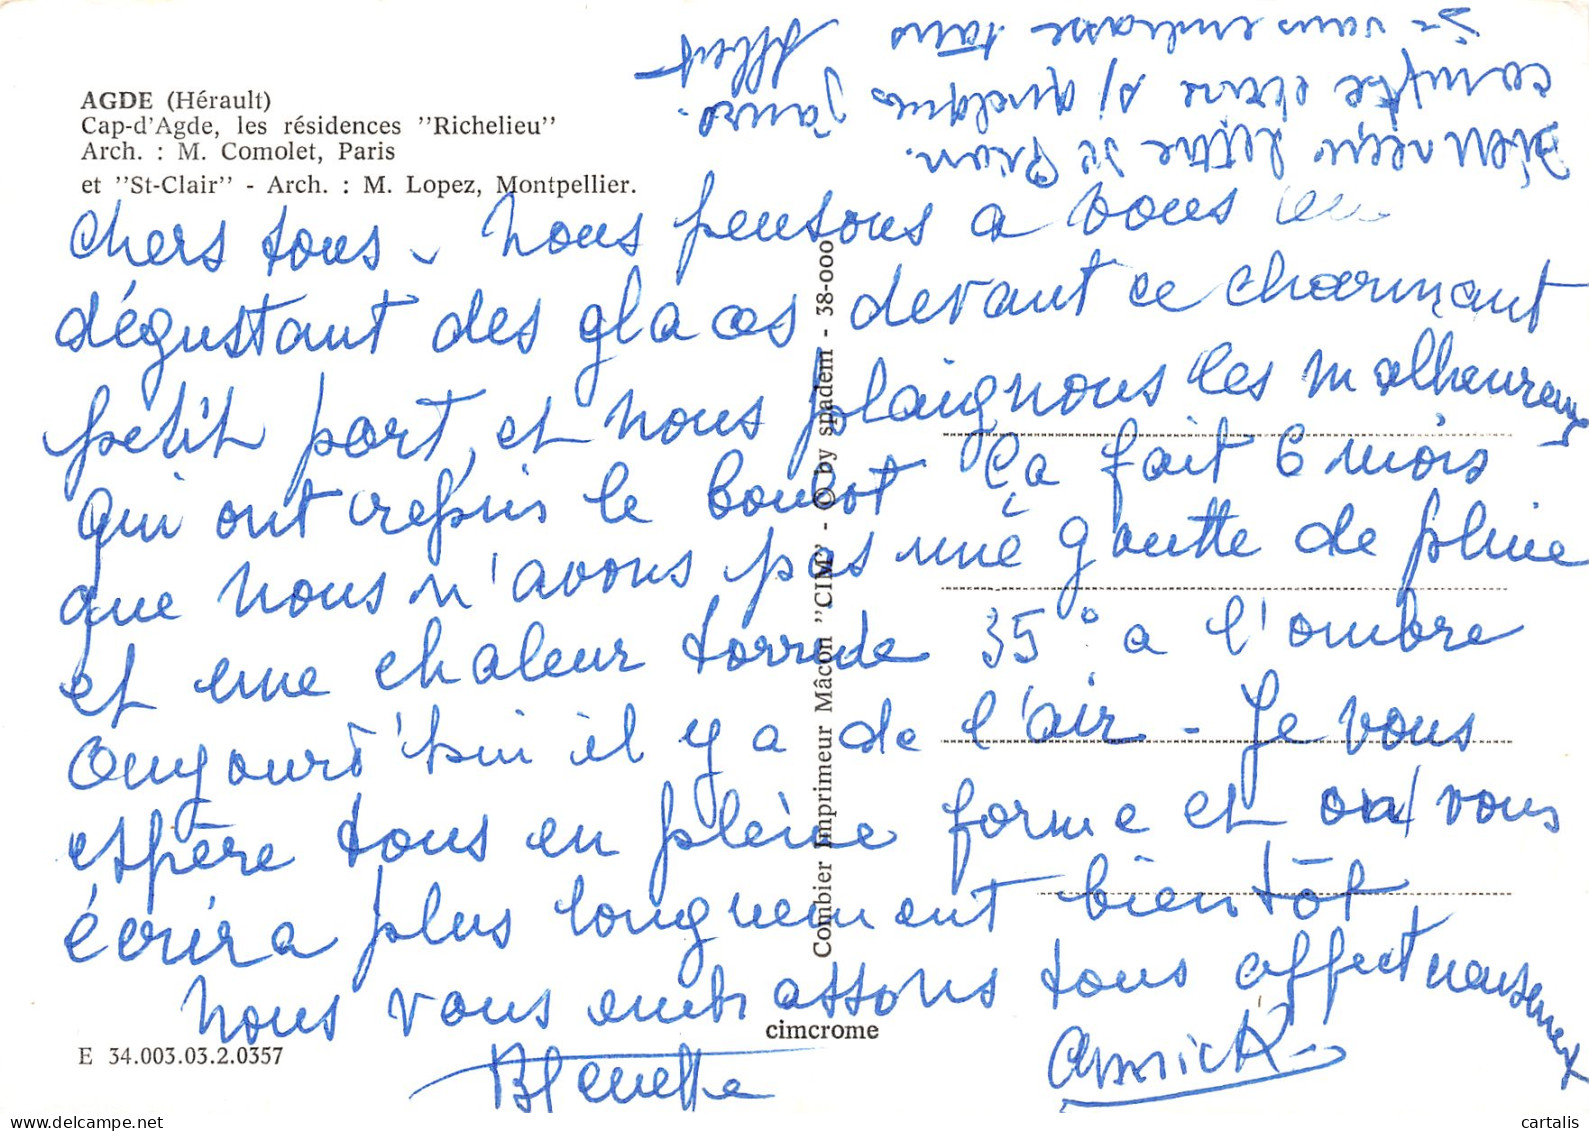 AGDE (Hérault)
Cap-d'Agde, les résidences "Richelieu"
Arch. : M. Comolet, Paris
et "St-Clair" - Arch. : M. Lopez, Montpellier.
chers tous - nous pensons a vous en
dégustant des glaces devant ce charmant
petit port, et nous plaignons les malheureux
qui ont repris le boulot ça fait 6 mois
que nous n'avons pas une goutte de pluie
et une chaleur torride 35° a l'ombre
aujourd'hui il y a de l'air - Je vous
espère tous en pleine forme et on vous
écrira plus longuement bientôt
nous vous embrassons tous affectueusement
Annick
Bien reçu lettre de
compte être quelques jours.
Je vous embrasse tous
Albert
Combier Imprimeur Mâcon "CIM" - © by spadem - 38-000
cimcrome
E 34.003.03.2.0357
www.delcampe.net
cartalis